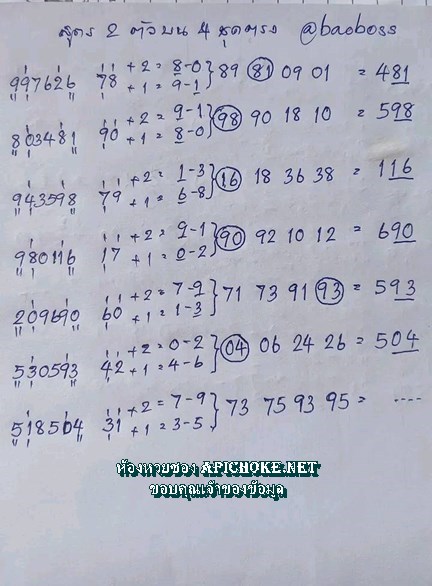 สูตร 2 ตัวบน 4 ชุดตรง @baoboss
+2 = 8-0
997626 78 89 81 09 01 = 481
+1 = 9-1
+2 = 9-1
803481 90 98 90 18 10 = 598
+1 = 8-0
+2 = 1-3
943598 79 16 18 36 38 = 116
+1 = 6-8
+2 = 9-1
980116 17 90 92 10 12 = 690
+1 = 0-2
+2 = 7-9
209690 60 71 73 91 93 = 593
+1 = 1-3
+2 = 0-2
530593 42 04 06 24 26 = 504
+1 = 4-6
+2 = 7-9
518504 31 73 75 93 95 = ....
+1 = 3-5
ห้องหวยซอง APICHOKE.NET
ขอบคุณเจ้าของข้อมูล